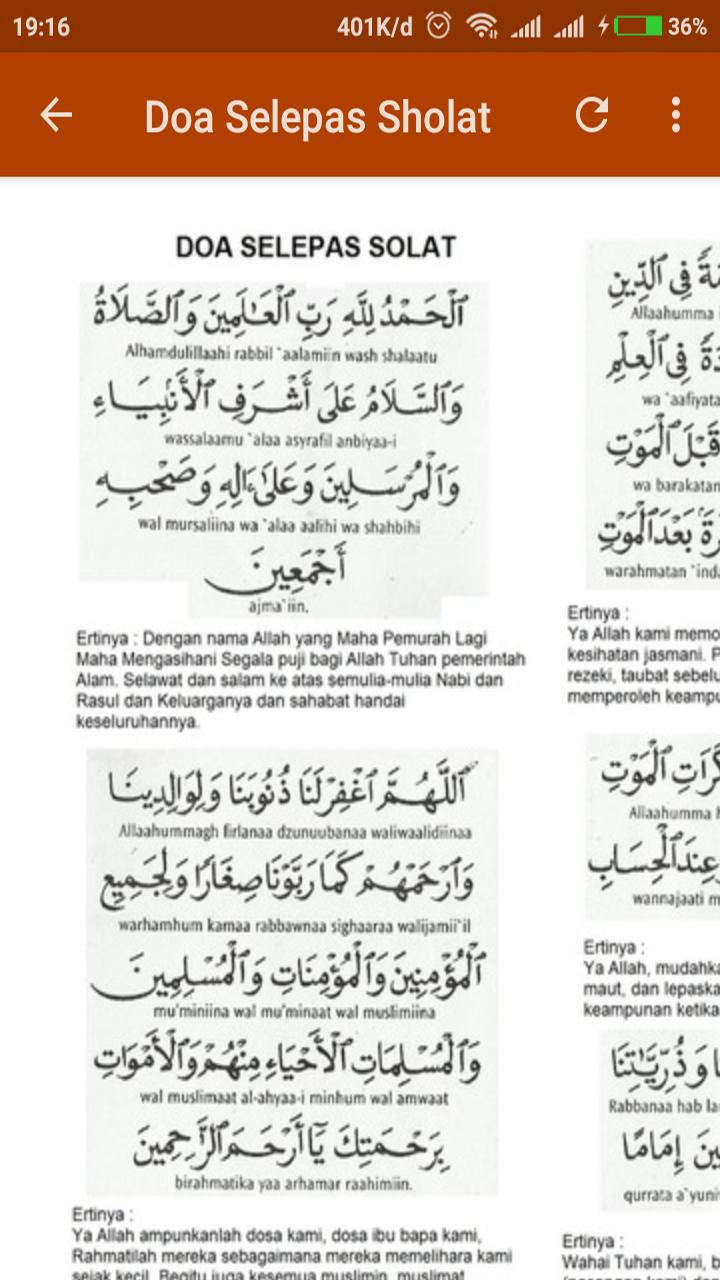 19:16
401K/d
36%
Doa Selepas Sholat
DOA SELEPAS SOLAT
اَلْحَمْدُ لِلَّهِ رَبِّ الْعَالَمِينَ وَالصَّلَاةُ
Alhamdulillaahi rabbil `aalamiin wash shalaatu
وَالسَّلَامُ عَلَى أَشْرَفِ الْأَنْبِيَاءِ
wassalaamu `alaa asyrafil anbiyaa-i
وَالْمُرْسَلِينَ وَعَلَىٰ ءَالِهِ وَصَحْبِهِ
wal mursaliina wa `alaa aalihi wa shahbihi
أَجْمَعِينَ
ajma`iin.
Ertinya : Dengan nama Allah yang Maha Pemurah Lagi
Maha Mengasihani Segala puji bagi Allah Tuhan pemerintah
Alam. Selawat dan salam ke atas semulia-mulia Nabi dan
Rasul dan Keluarganya dan sahabat handai
keseluruhannya.
اَللَّهُمَّ اغْفِرْلَنَا ذُنُوبَنَا وَلِوَالِدِينَا
Allaahummagh firlanaa dzunuubanaa waliwaalidiinaa
وَارْحَمْهُمْ كَمَا رَبَّوْنَا صِغَارًا وَلِجَمِيعِ
warhamhum kamaa rabbawnaa sighaaraa walijamii`il
الْمُؤْمِنِينَ وَالْمُؤْمِنَاتِ وَالْمُسْلِمِينَ
mu'miniina wal mu'minaat wal muslimiina
وَالْمُسْلِمَاتِ الْأَحْيَاءِ مِنْهُمْ وَالْأَمْوَاتِ
wal muslimaat al-ahyaa-i minhum wal amwaat
بِرَحْمَتِكَ يَا أَرْحَمَ الرَّاحِمِينَ
birahmatika yaa arhamar raahimiin.
Ertinya :
Ya Allah ampunkanlah dosa kami, dosa ibu bapa kami,
Rahmatilah mereka sebagaimana mereka memelihara kami
sejak kecil. Begitu juga kesemua muslimin, muslimat
فِي الدِّينِ
Allaahumma
فِي الْعِلْمِ
wa `aafiyata
قَبْلَ الْمَوْتِ
wa barakatan
بَعْدَ الْمَوْتِ
warahmatan `inda
Ertinya :
Ya Allah kami memo
kesihatan jasmani. P
rezeki, taubat sebelu
memperoleh keampu
الْمَوْتِ
Allaahumma h
عِنْدَ الْحِسَابِ
wannajaati m
Ertinya :
Ya Allah, mudahka
maut, dan lepaska
keampunan ketika
وَذُرِّيَّتِنَا
Rabbanaa hab la
إِمَامًا
qurrata a`yuni
Ertinya :
Wahai Tuhan kami, b